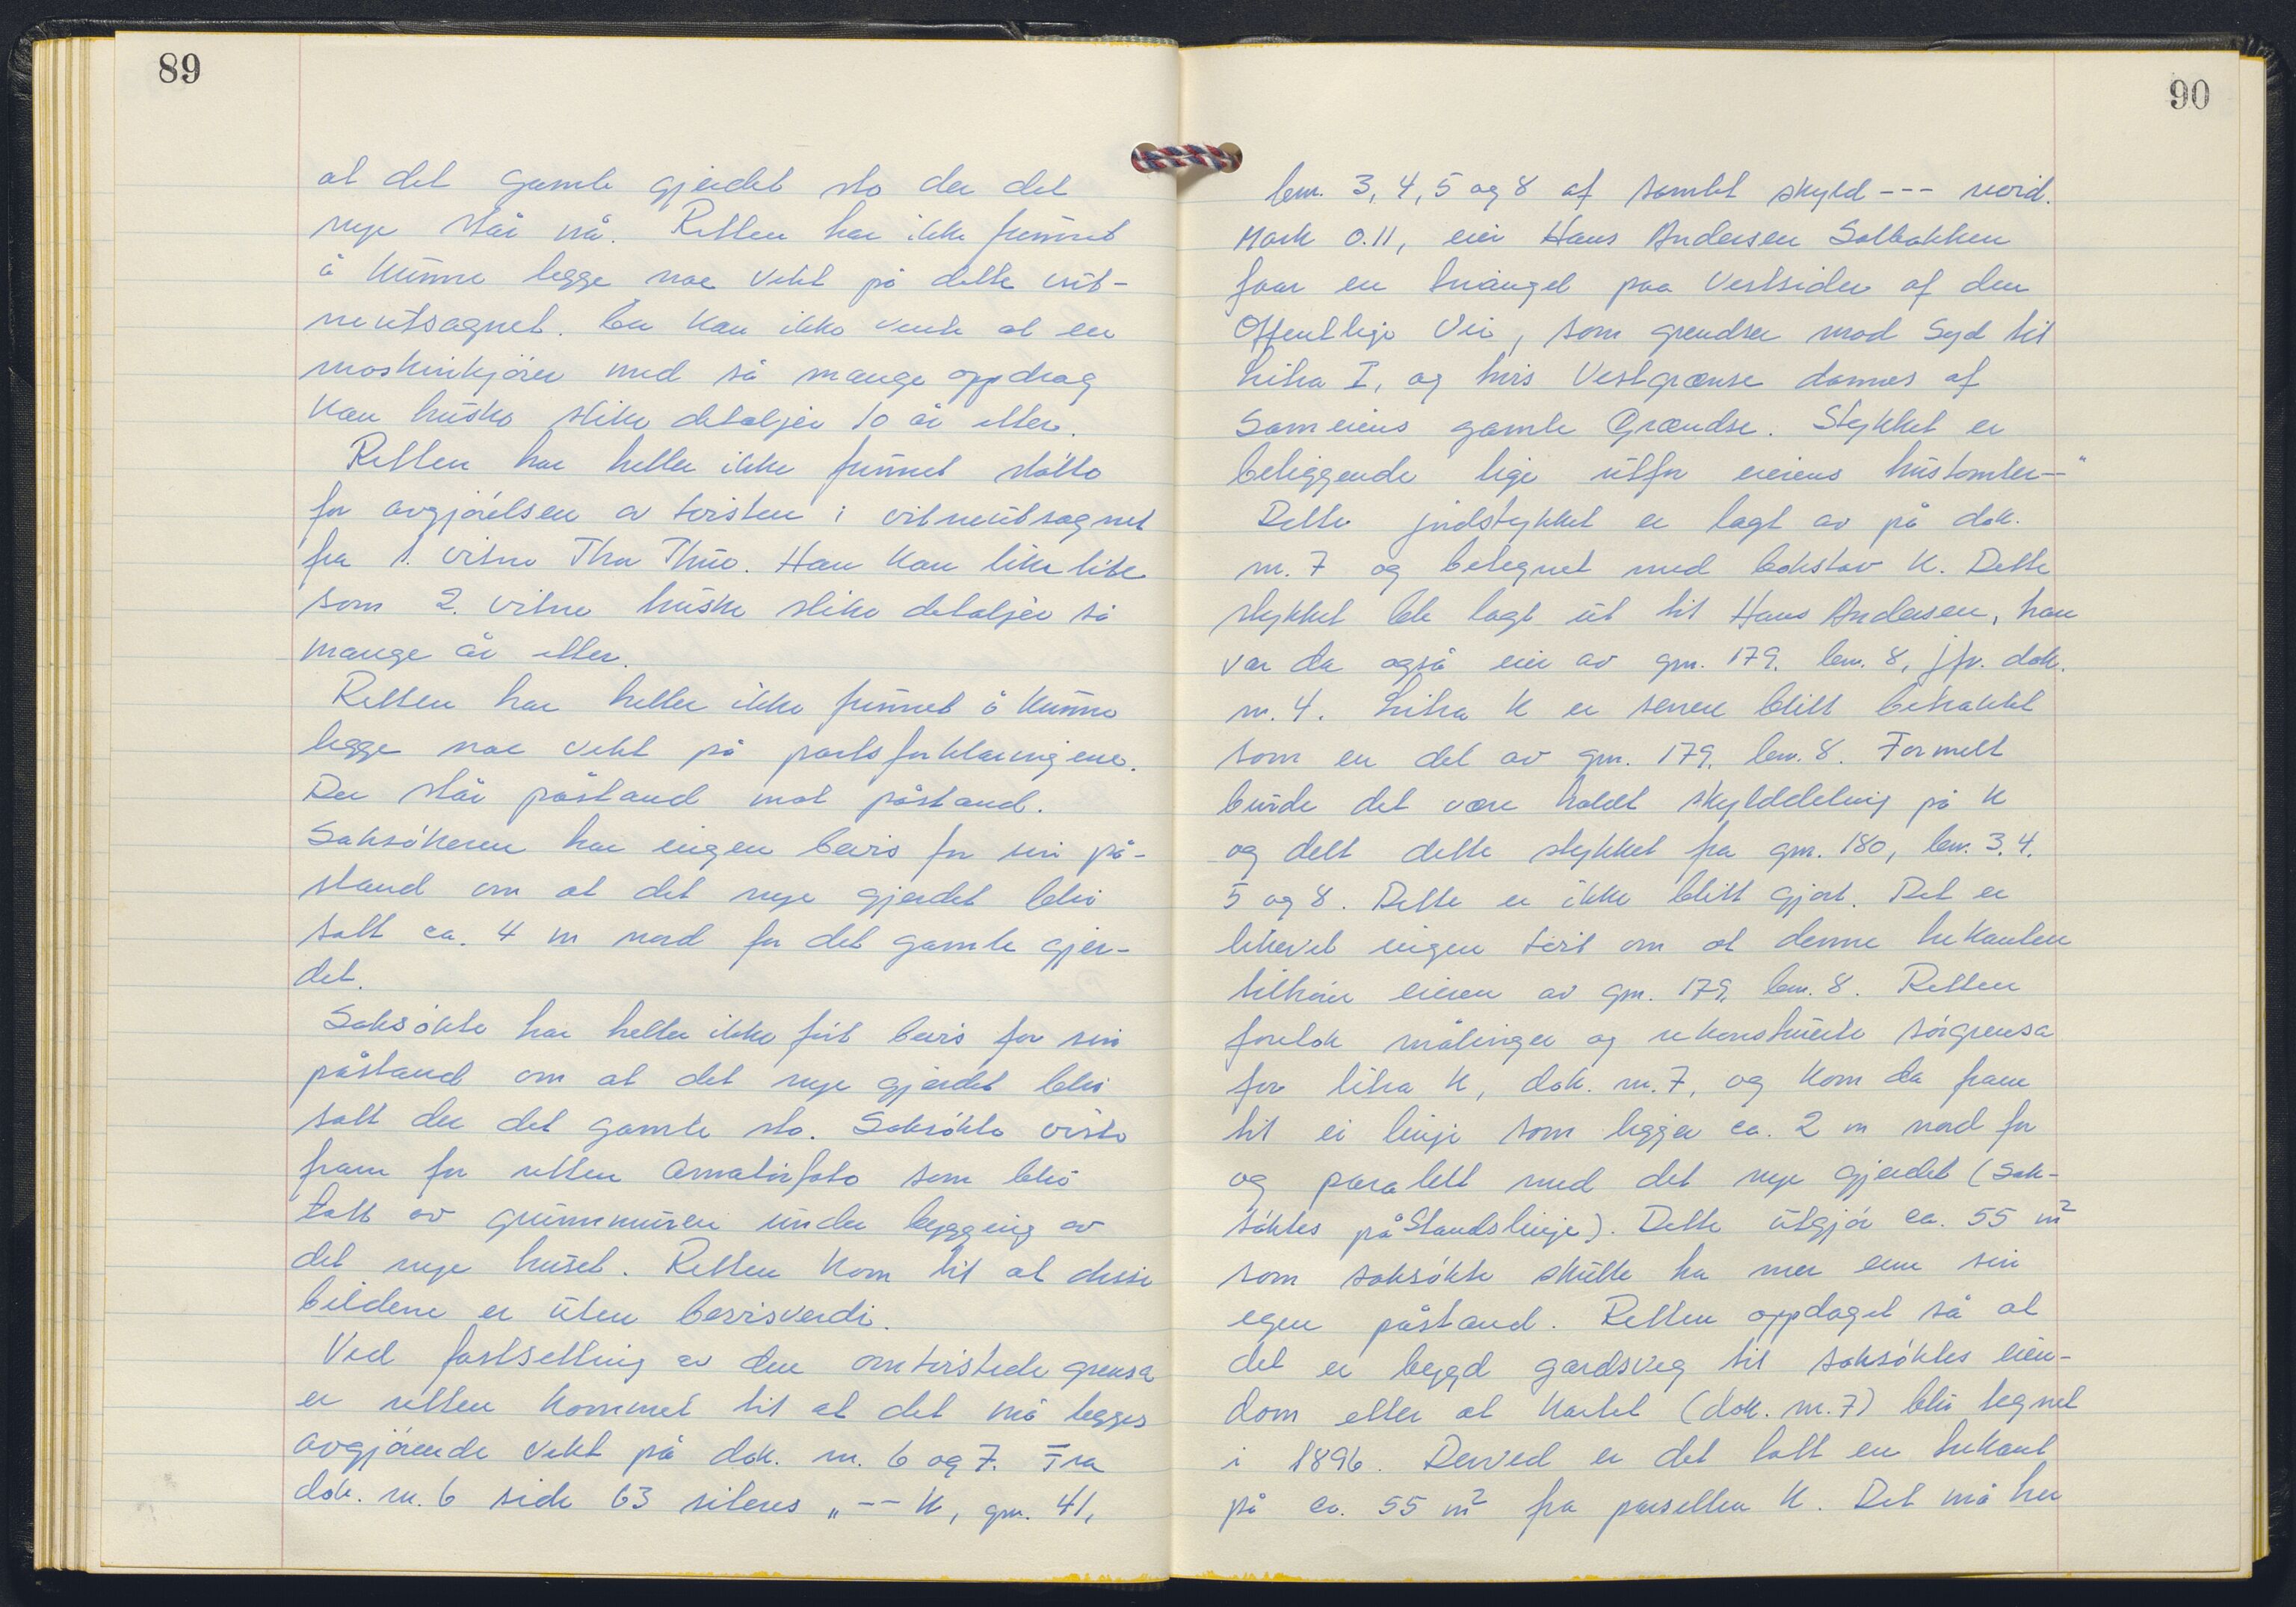 89
at det gamle gjerdet sto der det
nye står nå. Retten har ikke funnet
å kunne legge noe vekt på dette vit-
neutsagnet. En kan ikke vente at en
maskinkjører med så mange oppdrag
kan huske slike detaljer 10 år etter.
Retten har heller ikke funnet støtte
for avgjørelsen av tvisten i vitneutsagnet
fra 1. vitne Thor Thue. Han kan like lite
som 2. vitne huske slike detaljer så
mange år etter.
Retten har heller ikke funnet å kunne
legge noe vekt på partsforklaringene.
Der står påstand mot påstand.
Saksøkeren har ingen bevis for sin på-
stand om at det nye gjerdet blei
satt ca. 4 m nord for det gamle gjer-
det.
Saksøkte har heller ikke ført bevis for sin
påstand om at det nye gjerdet blei
satt der det gamle sto. Saksøkte viste
fram for retten amatørfoto som blei
tatt av grunnmuren under bygging av
det nye huset. Retten kom til at disse
bildene er uten bevisverdi.
Ved fastsetting av den omtvistede grensa
er retten kommet til at det må legges
avgjørende vekt på dok. nr. 6 og 7. Fra
dok. nr. 6 side 63 siteres „-- K, gnr. 41,
90
bnr. 3, 4, 5 og 8 af samlet skyld --- revid.
Mark 0.11, eier Hans Andersen Solbakken
faar en triangel paa Vestsiden af den
Offentlige Vei, som grendser mod Syd til
Litra I, og hvis Vestgrænse dannes af
Sameiets gamle Grændse. Stykket er
beliggende lige utfor eierens hustomter--"
Dette jordstykket er lagt av på dok.
nr. 7 og betegnet med bokstav K. Dette
stykket ble lagt ut til Hans Andersen, han
var da også eier av gnr. 179. bnr. 8, jfr. dok.
nr. 4. Litra K er senere blitt betraktet
som en del av gnr. 179. bnr. 8. Formelt
burde det være holdt skylddeling på K
og delt dette stykket fra gnr. 180, bnr. 3. 4.
5 og 8. Dette er ikke blitt gjort. Det er
likevel ingen tvist om at denne trekanten
tilhører eieren av gnr. 179, bnr. 8. Retten
foretok målinger og rekonstruerte sørgrensa
for litra K, dok. nr. 7, og kom da fram
til ei linje som ligger ca. 2 m nord for
og paralell med det nye gjerdet (sak-
søktes påstandslinje). Dette utgjør ca. 55 m²
som saksøkte skulle ha mer enn sin
egen påstand. Retten oppdaget så at
det er bygd gardsveg til saksøktes eien-
dom etter at kartet (dok. nr. 7) blei tegnet
i 1896. Derved er det tatt en trekant
på ca. 55 m² fra parsellen K. Det må her